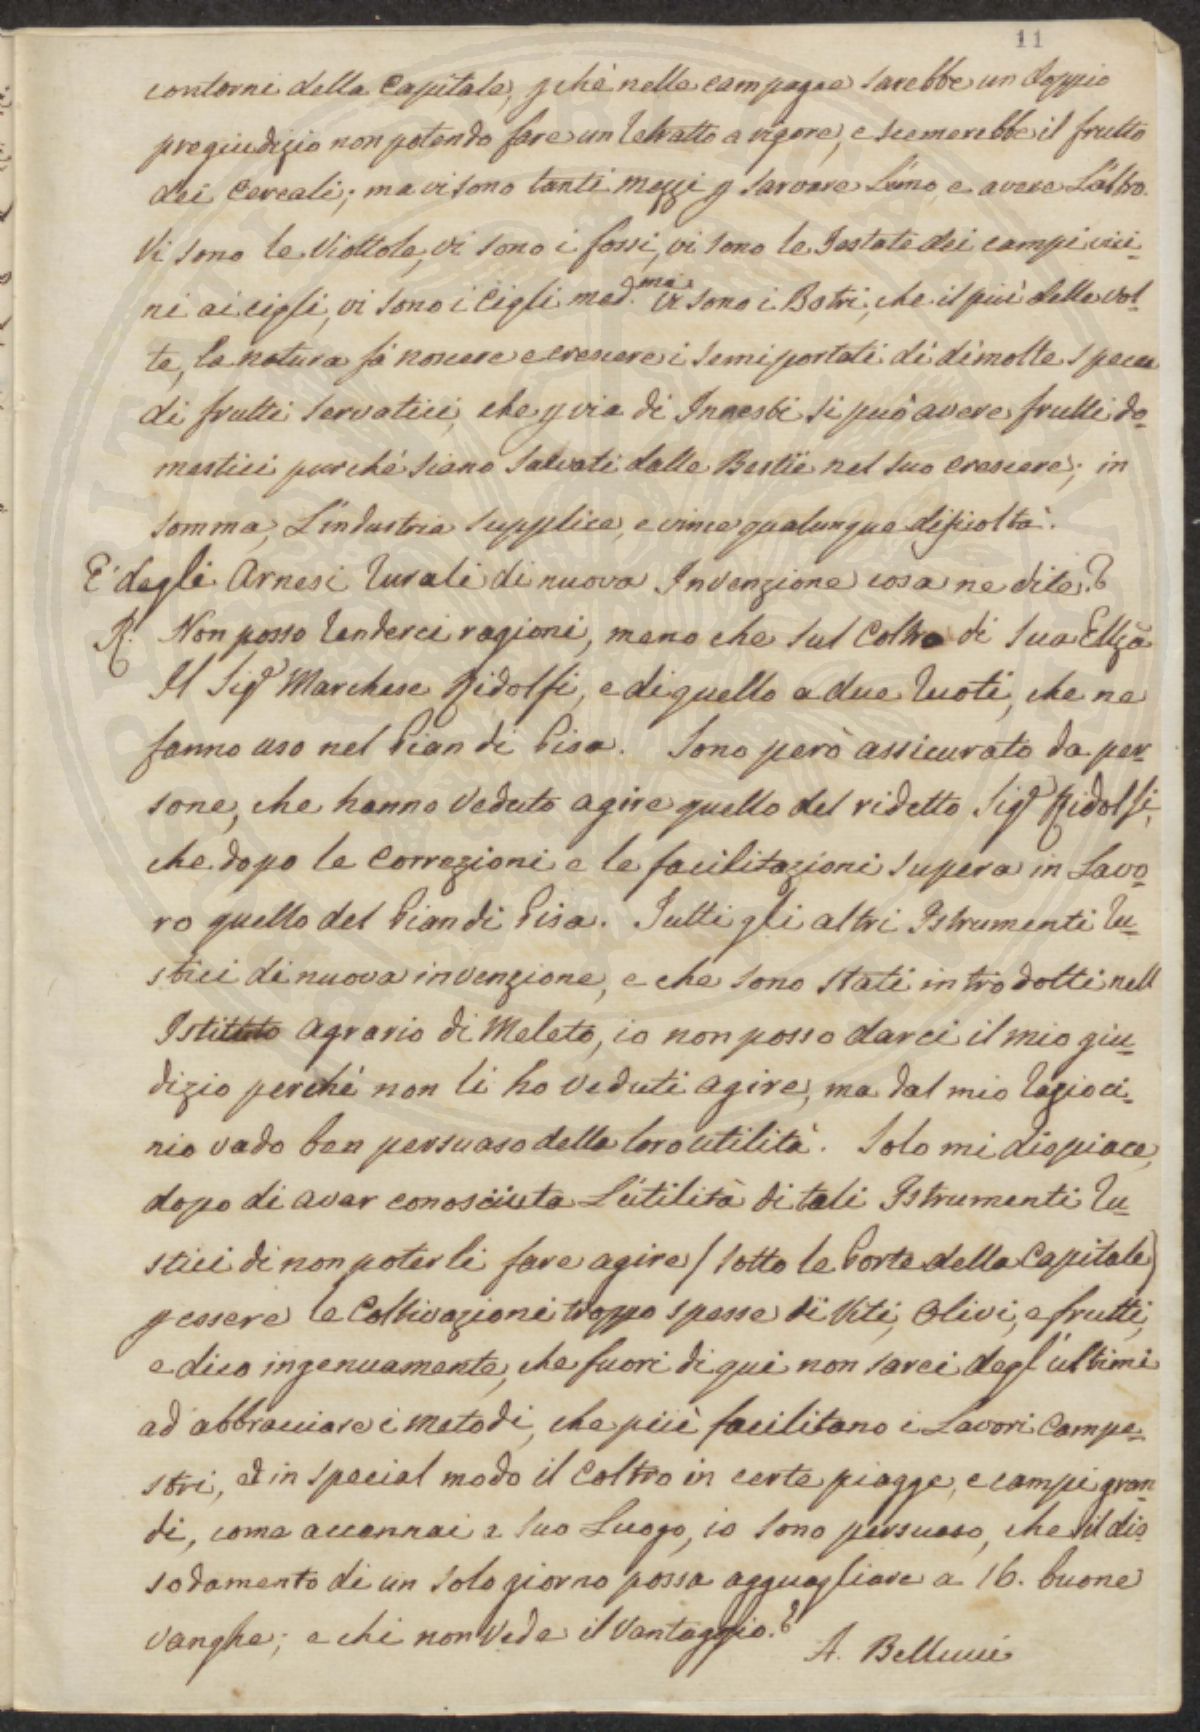 11
contorni della Capitale, p chè nelle campagne sarebbe un doppio
pregiudizio non potendo fare un retratto a vigore, e scemerebbe il frutto
dei Cereali; ma vi sono tanti mezzi p sarvare L'uno, e avere L'altro.
Vi sono le Viottole, vi sono i fossi, vi sono le Testate dei campi vici-
ni ai cigli, vi sono i Cigli med.mi vi sono i Botri, che il più delle vol-
te, la natura fà nascere e crescere i semi portati di dimolte specie
di frutti servatici, che p via di Innesti si può avere frutti do-
mestici purchè siano salvati dalle Bestie nel suo crescere; in
somma, L'industria supplice, e vince qualunque dificoltà.
E' degli Arnesi rurali di nuova Invenzione cosa ne dite?
R. Non posso renderci ragioni, meno che sul Coltro di Sua Ellzã
Il Sigr Marchese Ridolfi, e di quello a due ruoti, che ne
fanno uso nel Pian di Pisa. Sono però assicurato da per-
sone, che hanno veduto agire quello del ridetto Sigr Ridolfi,
che dopo le Correzioni e le facilitazioni supera in Lavo-
ro quello del Pian di Pisa. Tutti gli altri Istrumenti ru-
stici di nuova invenzione, e che sono stati introdotti nell
Istituto Agrario di Meleto, io non posso darci il mio giu-
dizio perchè non li ho veduti agire, ma dal mio razioci-
nio vado ben persuaso della loro utilità. Solo mi dispiace,
dopo di aver conosciuta L'utilità di tali Istrumenti ru-
stici di non poterli fare agire (sotto le Porte della Capitale)
p essere le Coltivazioni troppo spesse di Viti, Olivi, e frutti,
e dico ingenuamente, che fuori di qui non sarei degl'ultimi
ad abbracciare i metodi, che più facilitano i Lavori Campe-
stri, ed in special modo il Coltro in certe piagge, e campi gran
di, come accennai a suo Luogo, io sono persuaso, che il dis
sodamento di un solo giorno possa agguagliare a 16. buone
vanghe; e chi non vede il vantaggio?
A. Bellucci